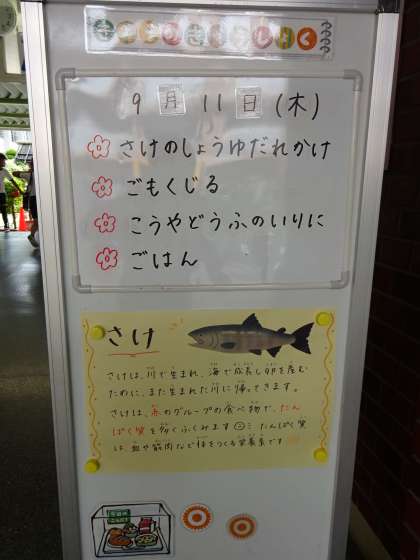 きょうのきゅうしょく
9月11日(木)
さけのしょうゆだれかけ
ごもくじる
こうやどうふのいりに
ごはん
さけ
さけは、川で生まれ、海で成長し卵を産む
ために、また生まれた川に帰ってきます。
さけは、赤のグループの食べ物で、たん
ぱく質を多くふくみます☺ たんぱく質
は、血や筋肉など体をつくる栄養素です